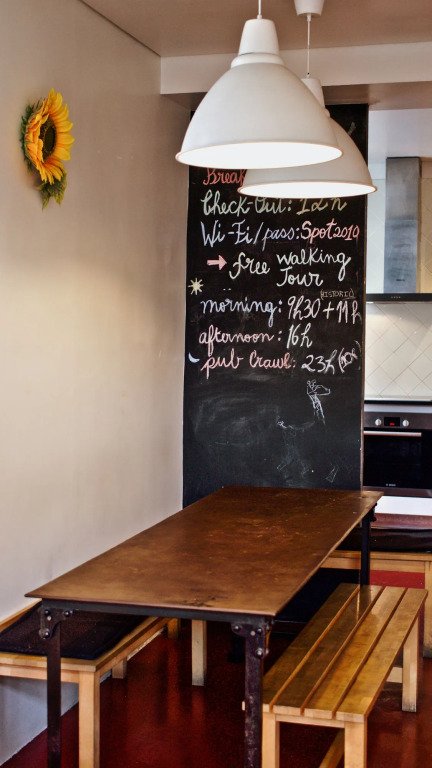 Check-Out: 12h
Wi-Fi/pass: Spot2019
→ free walking
Tour
(HISTORY)
morning: 9h30 + 11h
afternoon: 16h
pub Crawl: 23h